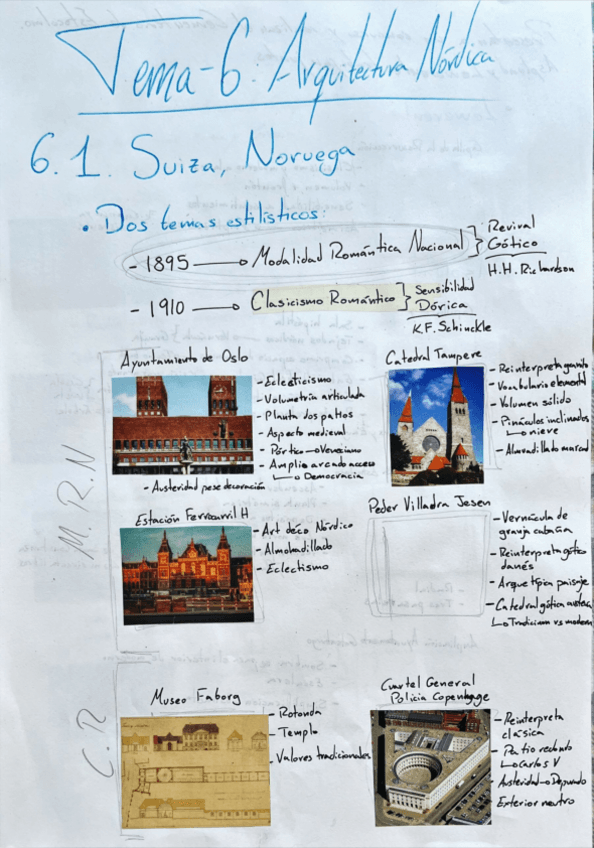 Tema-6: Arquitectura Nórdica
6.1. Suiza, Noruega
• Dos temas estilísticos:
- 1895 → Modalidad Romántica Nacional } Revival
Gótico
H.H. Richardson
- 1910 → Clasicismo Romántico } Sensibilidad
Dórica
K.F. Schinckle
M.R.N
Ayuntamiento de Oslo
- Eclecticismo
- Volumetría articulada
- Planta dos patios
- Aspecto medieval
- Pórtico → Veneciano
- Amplio arcado acceso
↳ Democracia
- Austeridad pese decoración
Catedral Tampere
- Reinterpreta granito
- Vocabulario elemental
- Volumen sólido
- Pináculos inclinados
↳ nieve
- Almoadillado marcad
Estación Ferrocarril H
- Art déco Nórdico
- Almohadillado
- Eclectismo
Peder Villadra Jesen
- Vernácula de
granja cabaña
- Reinterpreta gótico
danés
- Arquetípica paisaje
- Catedral gótica austera
↳ Tradicion vs modern
C.R
Museo Faborg
- Rotonda
- Templo
- Valores tradicionales
Cuartel General
Policia Copenhage
- Reinterpreta
clásica
- Patio redondo
↳ Carlos V
- Austeridad → Depurado
- Exterior neutro